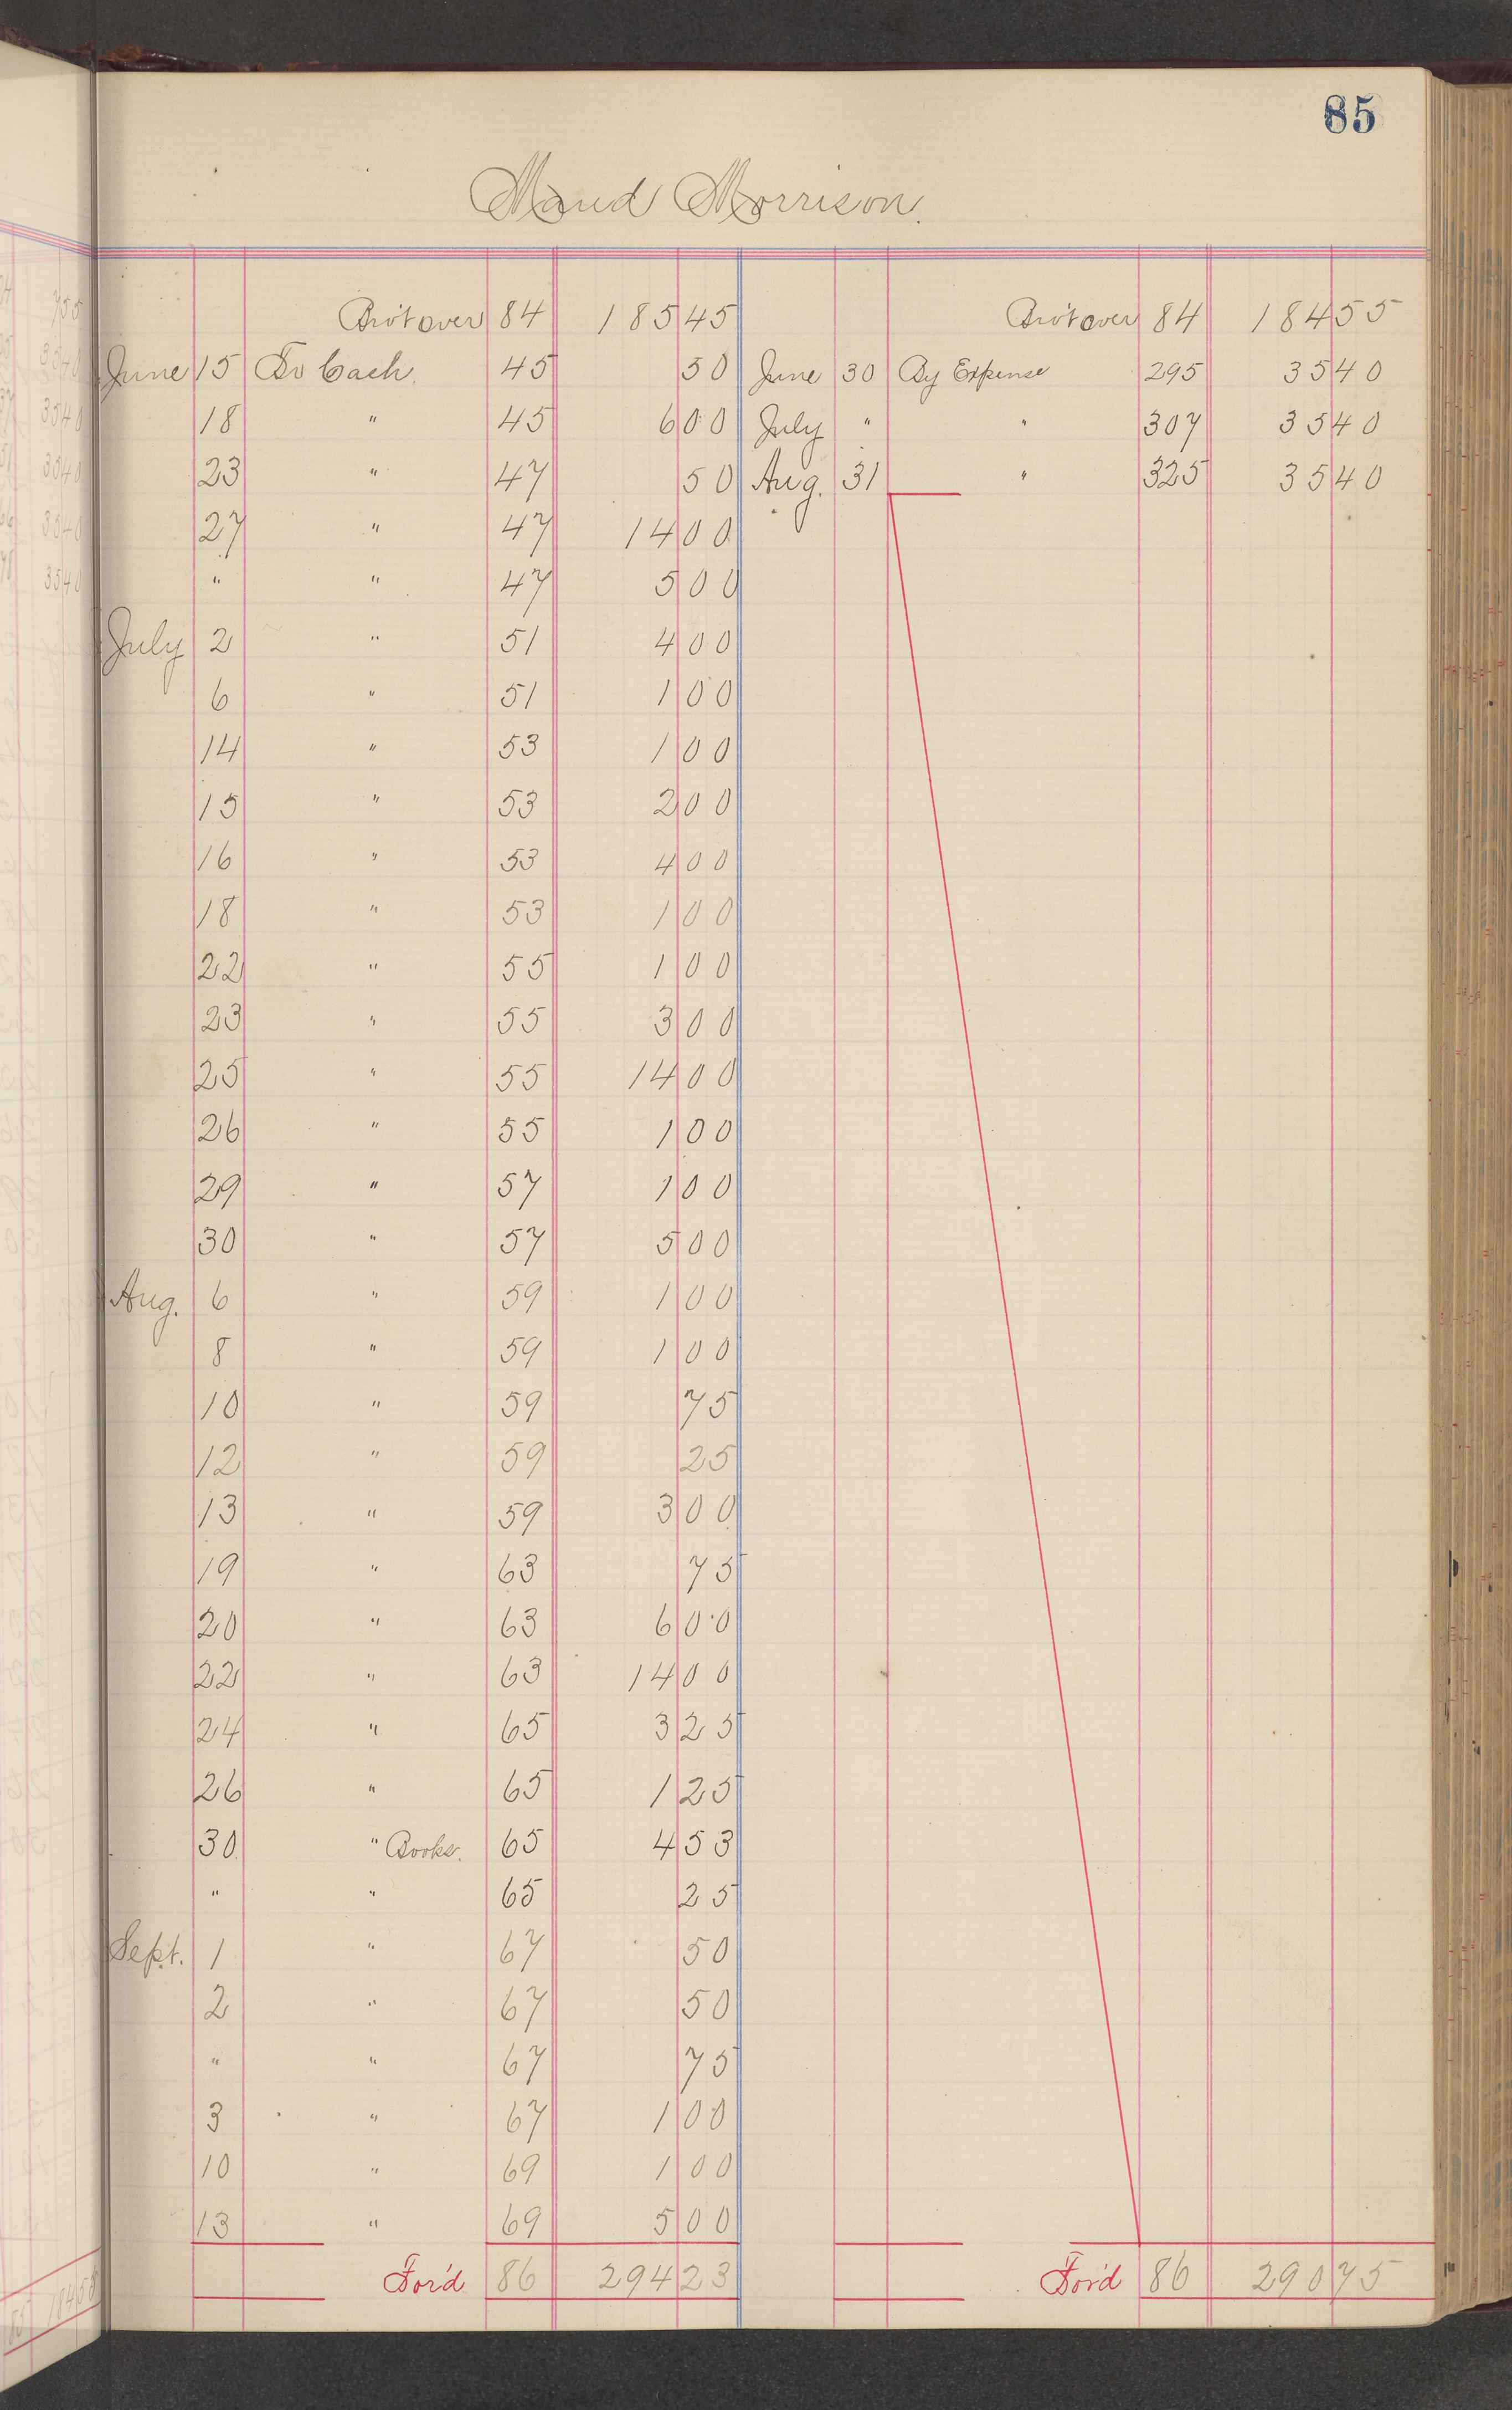 85
Maud Morrison.
Bro't over 84 185 45 Bro't over 84 184 55
June 15 To Cash. 45 50 June 30 By Expense 295 35 40
18 " 45 6 00 July " " 307 35 40
23 " 47 50 Aug. 31 " 325 35 40
27 " 47 14 00
" " 47 5 00
July 2 " 51 4 00
6 " 51 1 00
14 " 53 1 00
15 " 53 2 00
16 " 53 4 00
18 " 53 1 00
22 " 55 1 00
23 " 55 3 00
25 " 55 14 00
26 " 55 1 00
29 " 57 1 00
30 " 57 5 00
Aug. 6 " 59 1 00
8 " 59 1 00
10 " 59 75
12 " 59 25
13 " 59 3 00
19 " 63 75
20 " 63 6 00
22 " 63 14 00
24 " 65 3 25
26 " 65 1 25
30 " Books. 65 4 53
" " 65 25
Sept. 1 " 67 50
2 " 67 50
" " 67 75
3 " 67 1 00
10 " 69 1 00
13 " 69 5 00
For'd 86 294 23 For'd 86 290 75